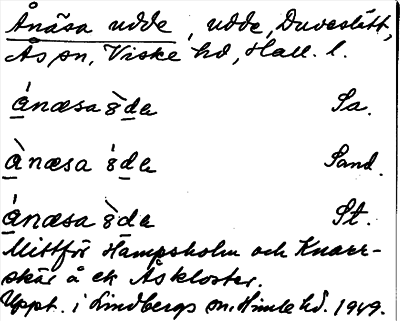 Ånäsa udde, udde, Duveslätt,
Ås sn, Viske hd, Hall. l.
ánæsa ȣ̀da Sa.
ànæsa ȣ́da Sand.
ánæsa ȣ̀da St.
Mittför Hampsholm och Knarr-
skär å ek Åskloster.
Uppt. i Lindbergs sn, Himle hd. 1949.